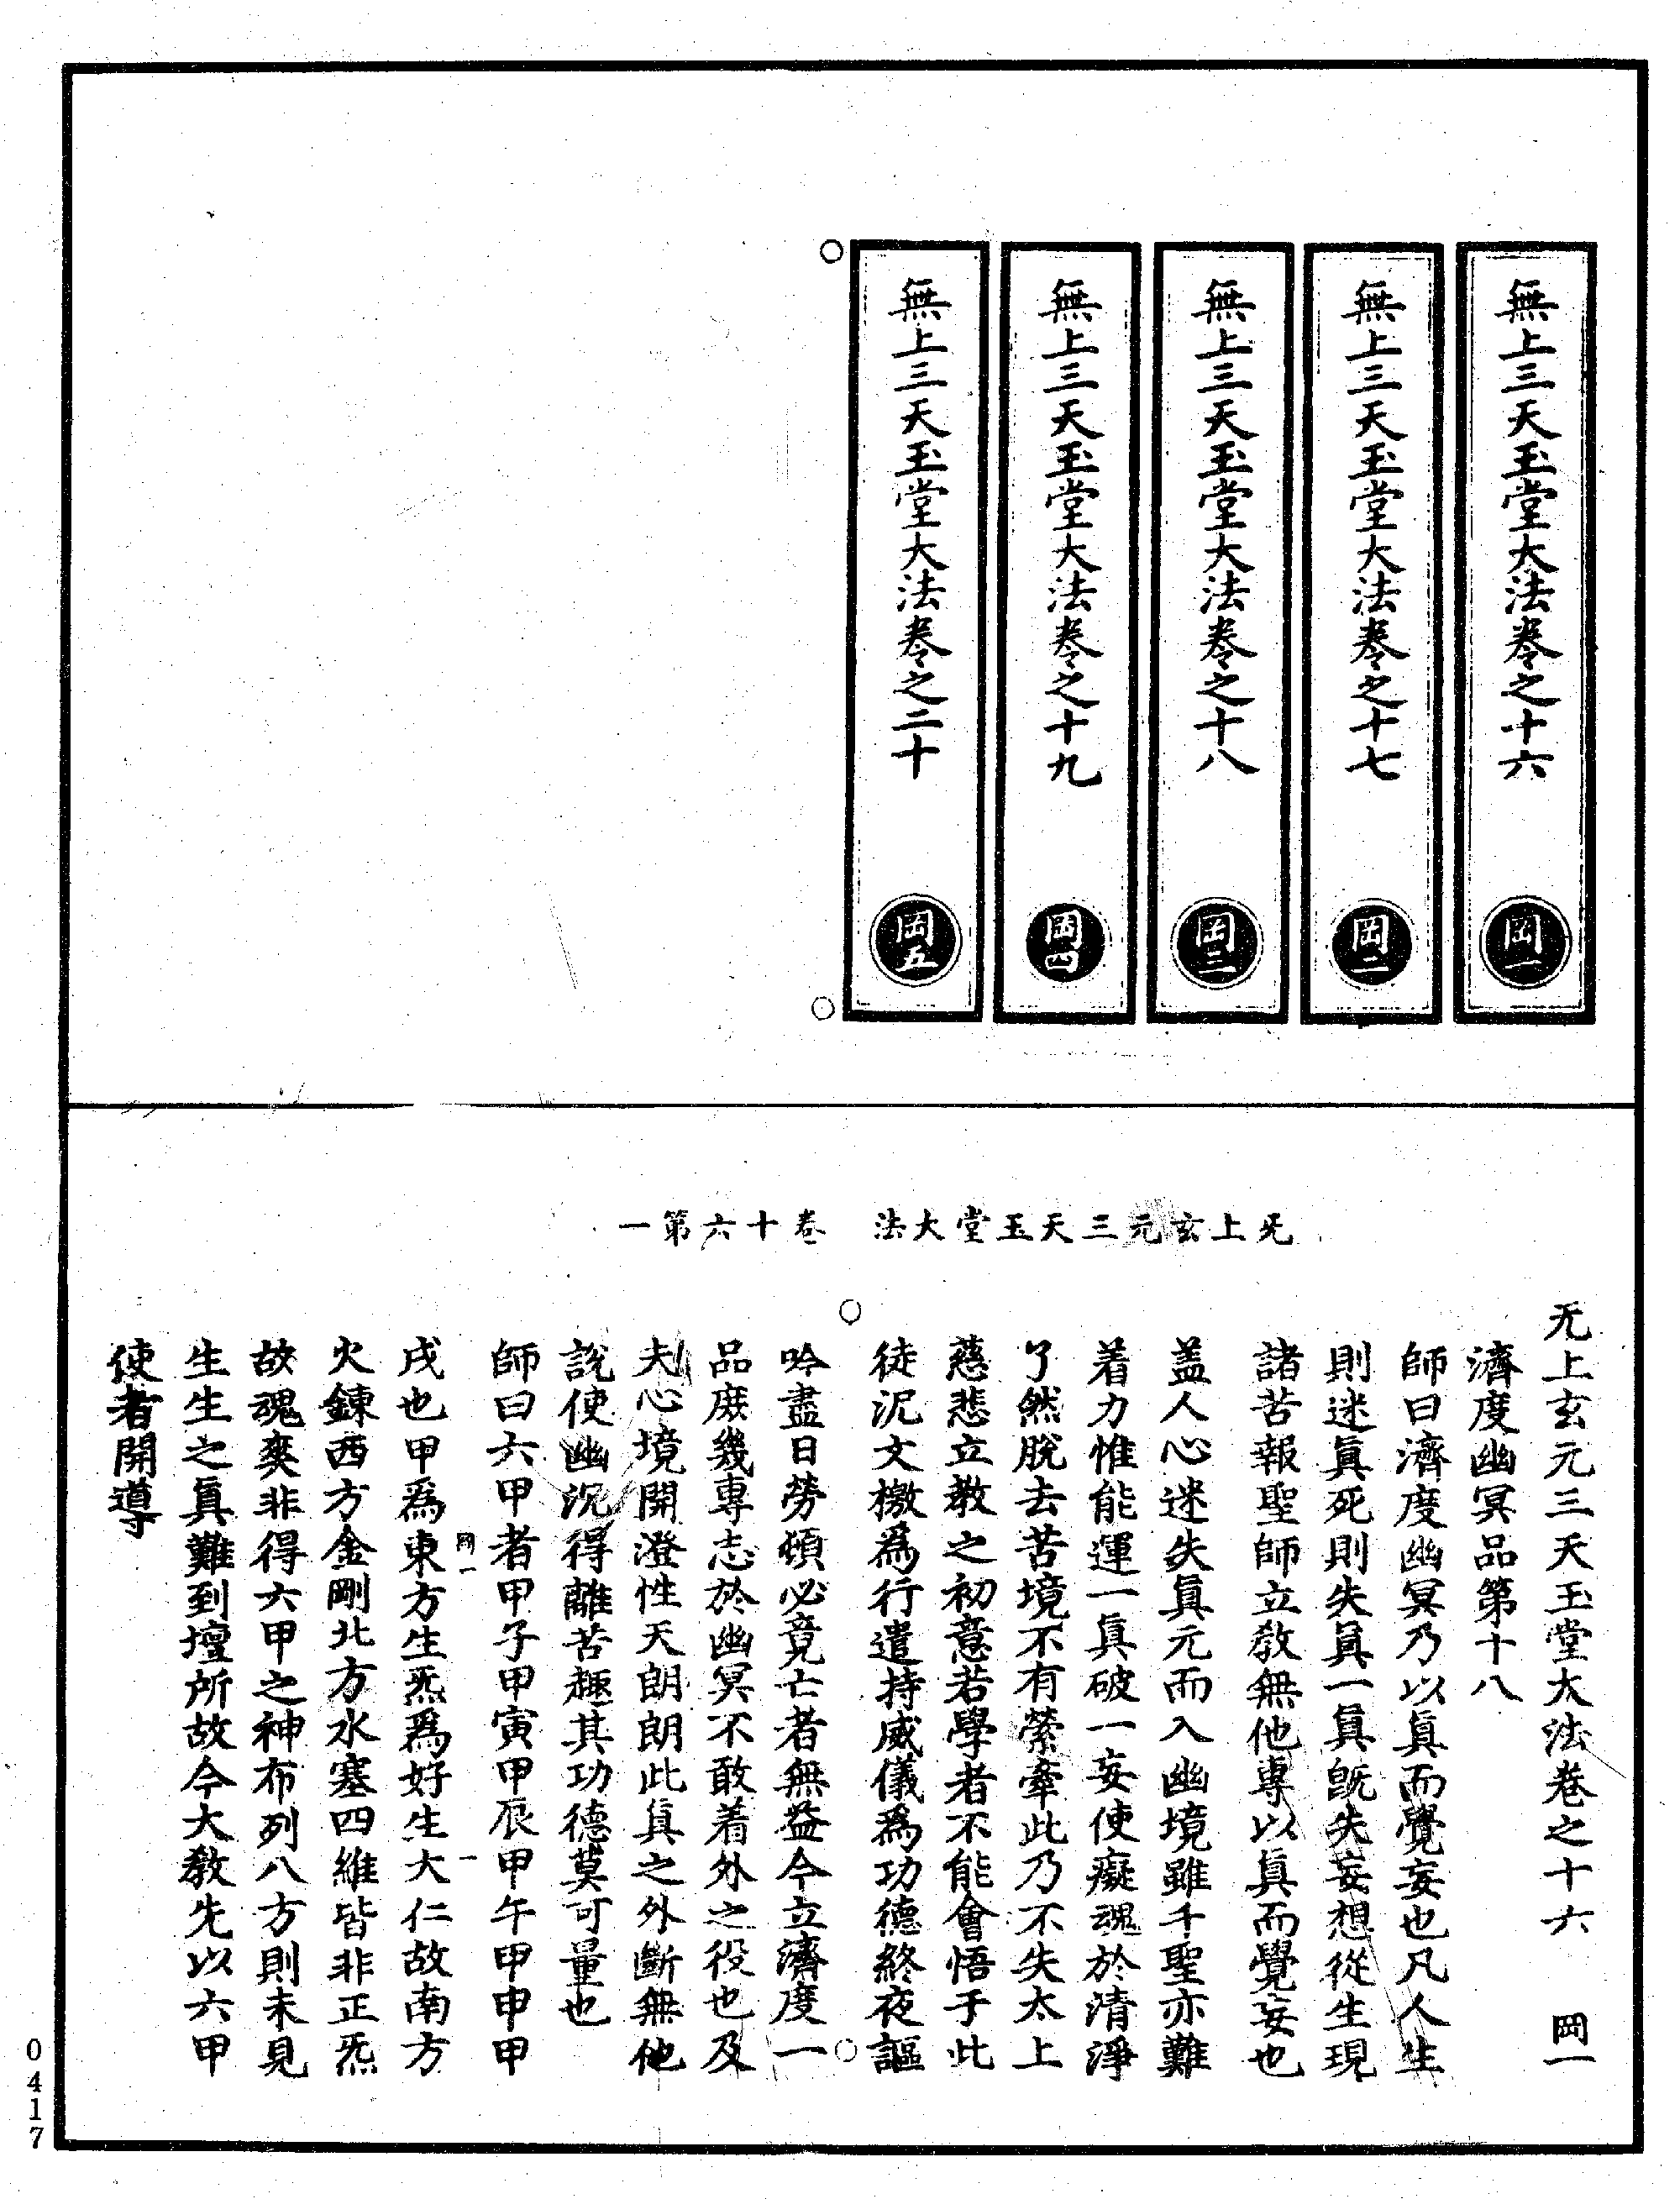 無上三天玉堂大法卷之十六 岡一
無上三天玉堂大法卷之十七 岡二
無上三天玉堂大法卷之十八 岡三
無上三天玉堂大法卷之十九 岡四
無上三天玉堂大法卷之二十 岡五
无上玄元三天玉堂大法 卷十六第一
无上玄元三天玉堂大法卷之十六 岡一
濟度幽冥品第十八
師曰濟度幽冥乃以真而覺妄也凡人生
則迷真死則失真一真旣失妄想從生現
諸苦報聖師立教無他專以真而覺妄也
盖人心迷失真元而入幽境雖千聖亦難
着力惟能運一真破一妄使癡魂於清淨
了然脫去苦境不有縈牽此乃不失太上
慈悲立教之初意若學者不能會悟于此
徒泥文檄爲行遣持威儀爲功德終夜謳
吟盡日勞頓必竟亡者無益今立濟度一
品庶幾專志於幽冥不敢着外之役也及
夫心境開澄性天朗朗此真之外斷無他
說使幽沉得離苦趣其功德莫可量也
師曰六甲者甲子甲寅甲辰甲午甲申甲
岡一 一
戌也甲爲東方生炁爲好生大仁故南方
火鍊西方金剛北方水塞四維皆非正炁
故魂爽非得六甲之神布列八方則未見
生生之真難到壇所故今大教先以六甲
使者開導
0417